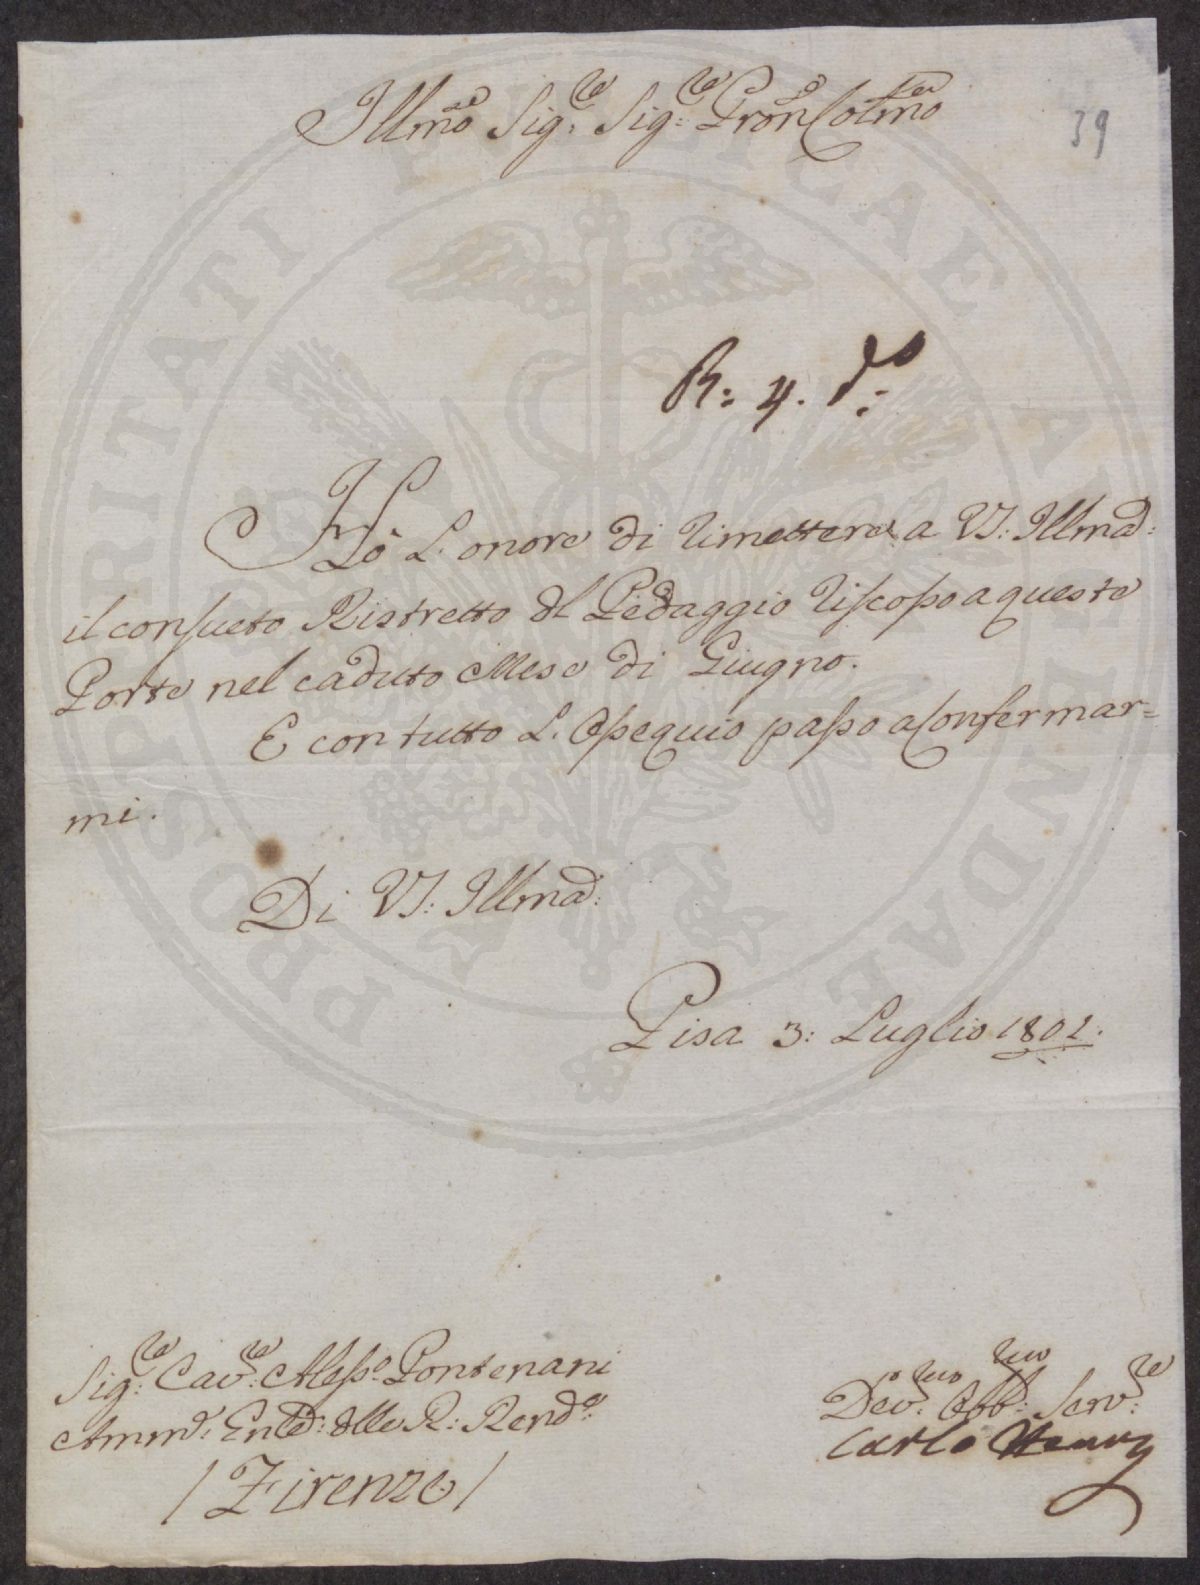 Illmo Sig:re Sig:re Pron Colmo
39
R: 4. do:
Hò L'onore di rimettere a VS: Illma:
il consueto Ristretto dl Pedaggio riscosso a queste
Porte nel caduto Mese di Giugno.
E con tutto L'Ossequio passo a Confermar=
mi.
Di VS: Illma:
Pisa 3: Luglio 1801.
Sig:re Cav:re Aless:o Pontenani
Amm:re delle R: Rend:e
/ Firenze /
Dev:mo Obb:mo Serv:re
Carlo
PROSPERITATI PUBLICAE AUGENDAE